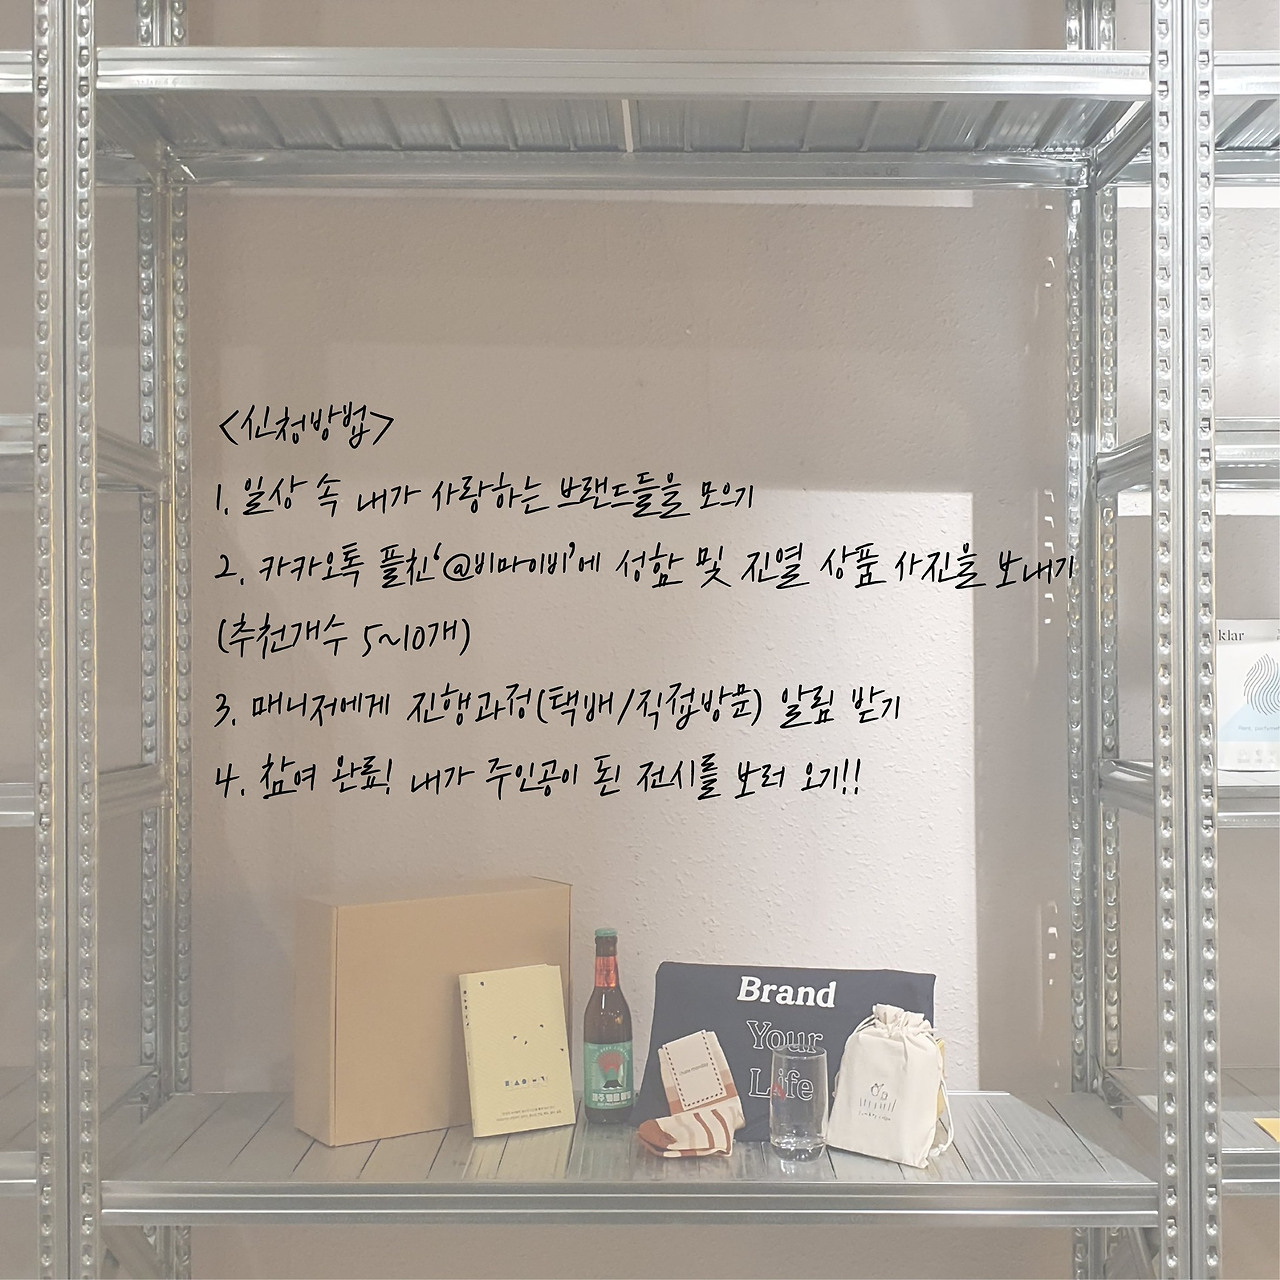 <신청방법>
1. 일상 속 내가 사랑하는 브랜드들을 모으기
2. 카카오톡 플친‘@비마이비’에 성함 및 진열 상품 사진을 보내기
(추천개수 5~10개)
3. 매니저에게 진행과정(택배/직접방문) 알림 받기
4. 참여 완료! 내가 주인공이 된 전시를 보러 오기!!
klar
Brand
Your
Life
제주 펠롱 에일